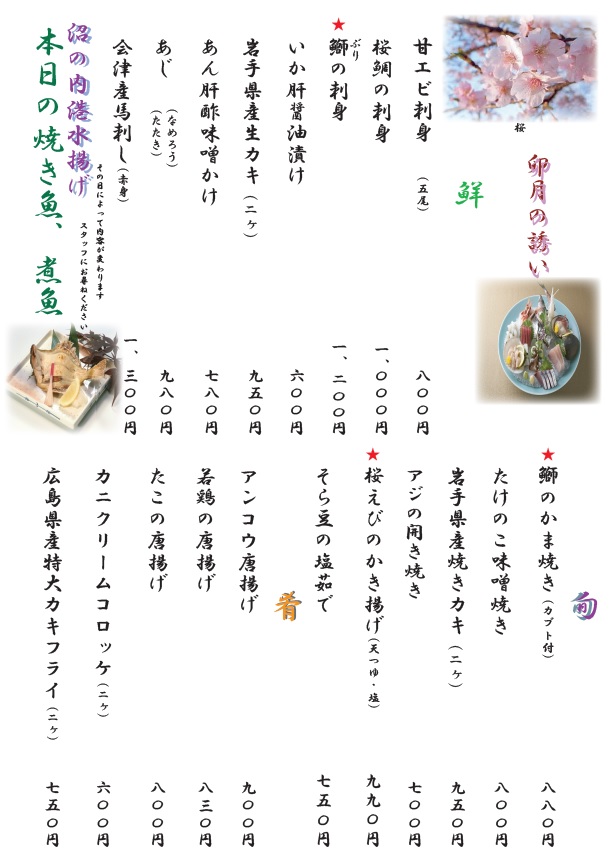 桜
卯月の誘い
鮮
甘エビ刺身(五尾) 八〇〇円
桜鯛の刺身 一、〇〇〇円
★鰤の刺身 一、二〇〇円
ぶり
いか肝醤油漬け 六〇〇円
岩手県産生カキ(二ケ) 九五〇円
あん肝酢味噌かけ 七八〇円
あじ(なめろう)(たたき) 九八〇円
会津産馬刺し(赤身) 一、三〇〇円
沼の内港水揚げ
本日の焼き魚、煮魚
その日によって内容が変わります
スタッフにお尋ねください
旬
★鰤のかま焼き(カブト付) 八八〇円
たけのこ味噌焼き 八〇〇円
岩手県産焼きカキ(二ケ) 九五〇円
アジの開き焼き 七〇〇円
★桜えびのかき揚げ(天つゆ・塩) 九九〇円
そら豆の塩茹で 七五〇円
肴
アンコウ唐揚げ 九〇〇円
若鶏の唐揚げ 八三〇円
たこの唐揚げ 八〇〇円
カニクリームコロッケ(二ケ) 六〇〇円
広島県産特大カキフライ(二ケ) 七五〇円